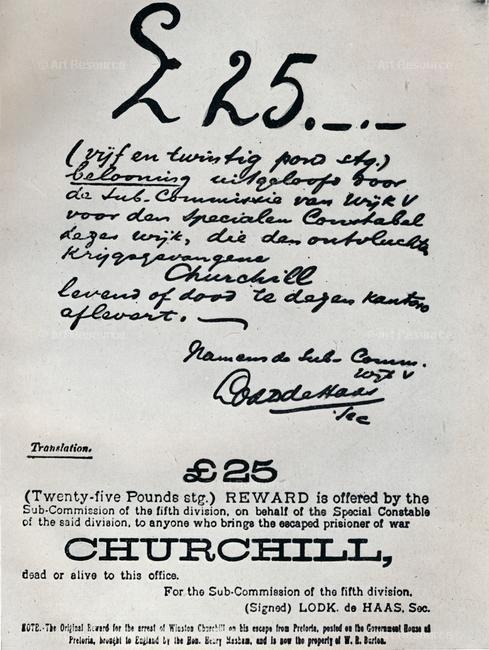 © Art Resource
© Art Resource
£25.—.—
(vijf en twintig pond stg.)
belooning uitgeloofd door
de Sub-Commissie van Wijk V
voor den Specialen Constabel
dezes wijk, die den ontvluchte
Krijgsgevangene
Churchill
levend of dood te dezen kantore
aflevert.—
Namens de Sub-Comm.
Wijk V
Lodk de Haas
Sec
Translation.
£25
(Twenty-five Pounds stg.) REWARD is offered by the
Sub-Commission of the fifth division, on behalf of the Special Constable
of the said division, to anyone who brings the escaped prisioner of war
CHURCHILL,
dead or alive to this office.
For the Sub-Commission of the fifth division.
(Signed) LODK. de HAAS, Sec.
NOTE.-The Original Reward for the arrest of Winston Churchill on his escape from Pretoria, posted on the Government House at
Pretoria, brought to England by the Hon. Henry Masham, and is now the property of W. R. Burton.